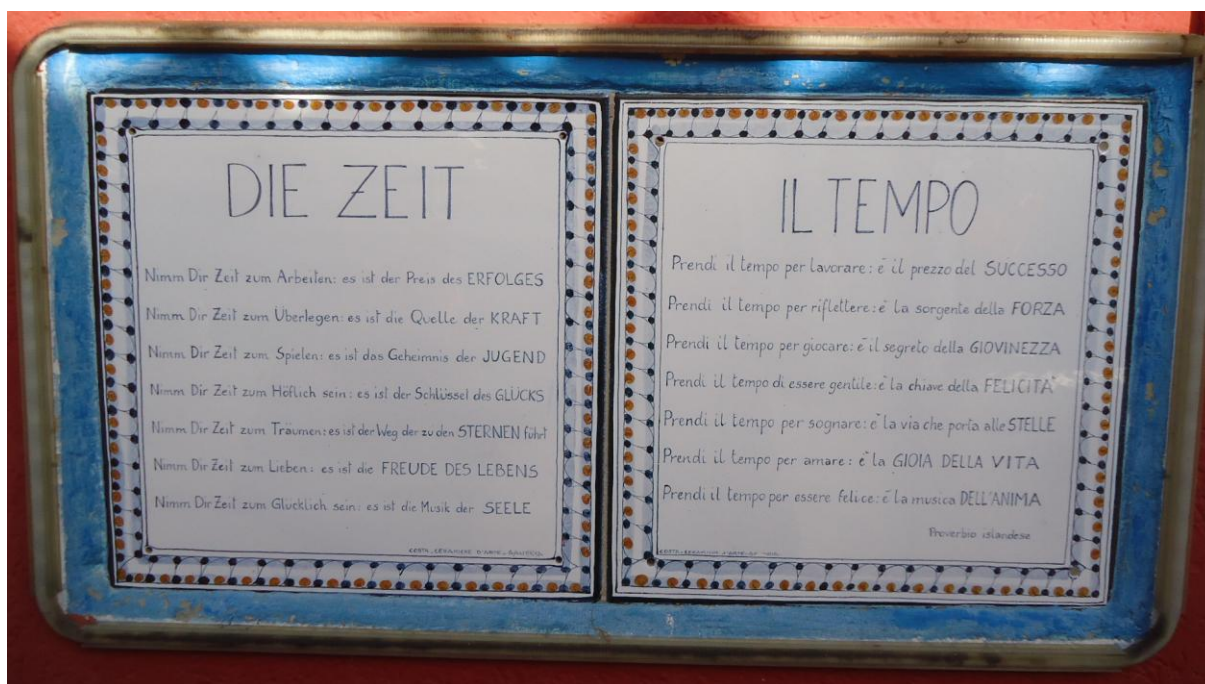 DIE ZEIT
Nimm Dir Zeit zum Arbeiten: es ist der Preis des ERFOLGES
Nimm Dir Zeit zum Überlegen: es ist die Quelle der KRAFT
Nimm Dir Zeit zum Spielen: es ist das Geheimnis der JUGEND
Nimm Dir Zeit zum Höflich sein: es ist der Schlüssel des GLÜCKS
Nimm Dir Zeit zum Träumen: es ist der Weg der zu den STERNEN führt
Nimm Dir Zeit zum Lieben: es ist die FREUDE DES LEBENS
Nimm Dir Zeit zum Glücklich sein: es ist die Musik der SEELE
IL TEMPO
Prendi il tempo per lavorare: è il prezzo del SUCCESSO
Prendi il tempo per riflettere: è la sorgente della FORZA
Prendi il tempo per giocare: è il segreto della GIOVINEZZA
Prendi il tempo di essere gentile: è la chiave della FELICITÀ
Prendi il tempo per sognare: è la via che porta alle STELLE
Prendi il tempo per amare: è la GIOIA DELLA VITA
Prendi il tempo per essere felice: è la musica DELL'ANIMA
Proverbio islandese